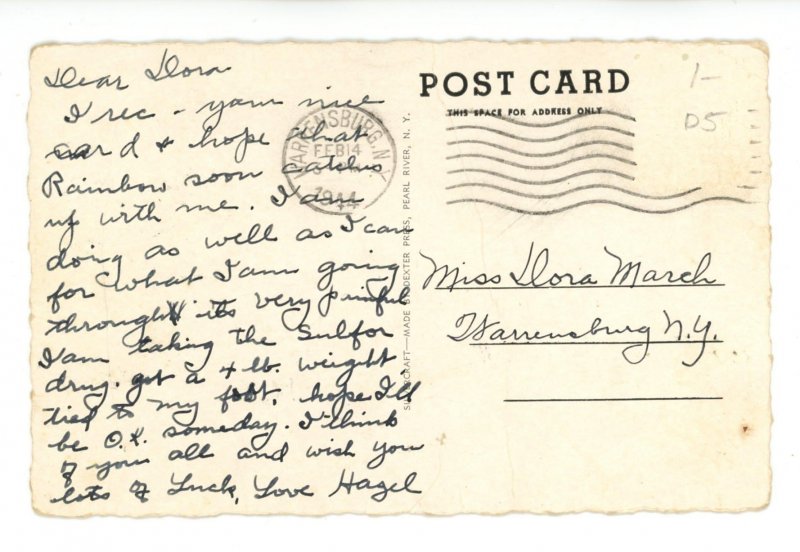 Dear Dora
I rec - your nice
card & hope that
Rainbow soon catches
up with me. I am
doing as well as I can
for what I am going
through its very painful
I am taking the Sulfor
drug. got a 4 lb. weight
tied to my foot, hope I'll
be O.K. someday. I think
of you all and wish you
lots of Luck, Love Hazel
WARRENSBURG, N.Y.
FEB 14
1944
MADE BY DEXTER PRESS, PEARL RIVER, N. Y.
POST CARD
THIS SPACE FOR ADDRESS ONLY
1-
D5
Miss Dora March
Warrensburg N.Y.